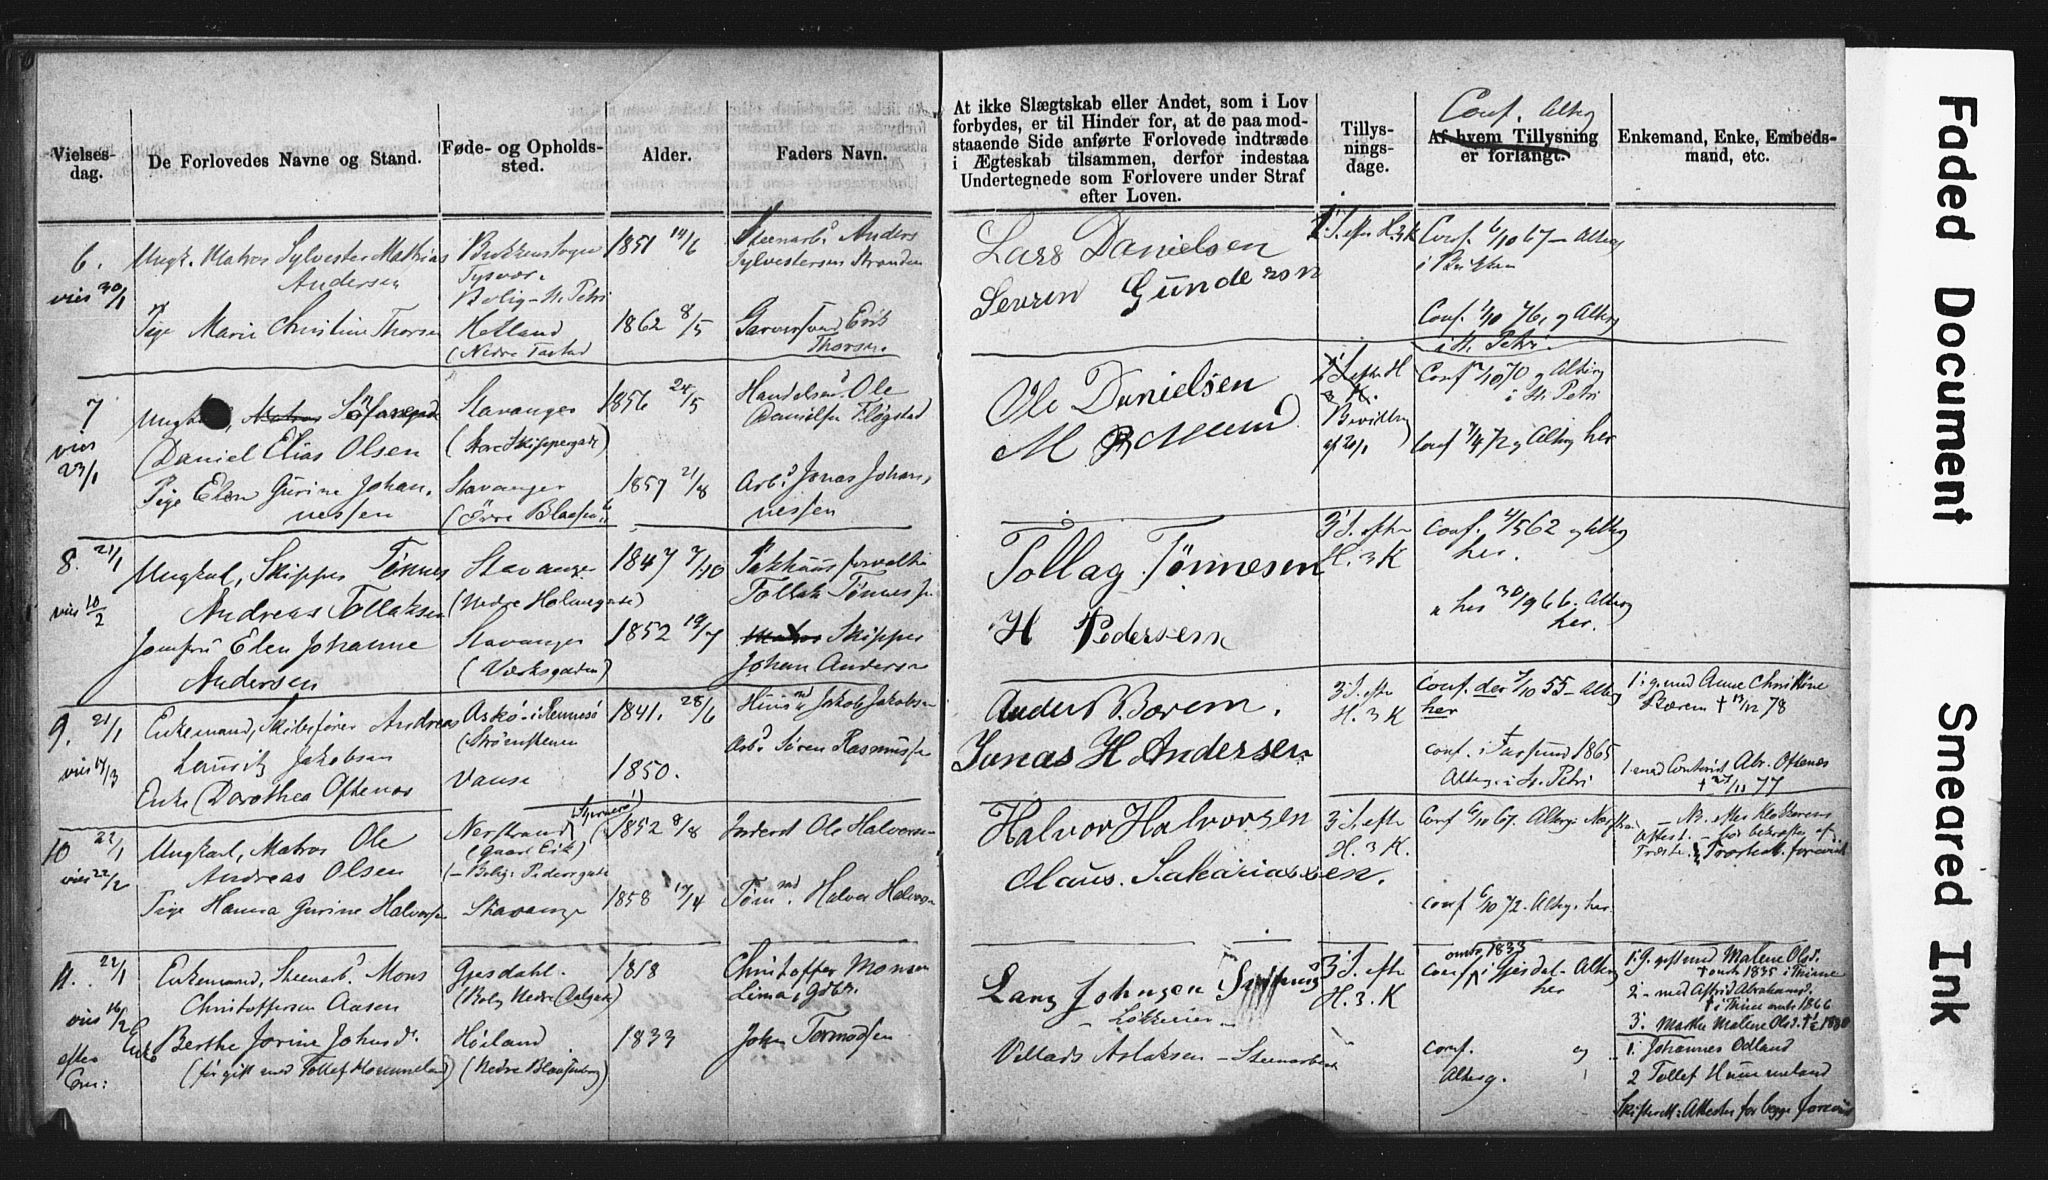 Vielses-
dag.
De Forlovedes Navne og Stand.
Føde- og Opholds-
sted.
Alder.
Faders Navn.
At ikke Slægtskab eller Andet, som i Lov
forbydes, er til Hinder for, at de paa mod-
staaende Side anførte Forlovede indtræde
i Ægteskab tilsammen, derfor indestaa
Undertegnede som Forlovere under Straf
efter Loven.
Tillys-
nings-
dage.
Conf. Altg
Af hvem Tillysning
er forlangt.
Enkemand, Enke, Embeds-
mand, etc.
6.
vies 30/1
Ungk. Matros Sylvester Mathias
Andersen
Tysvær.
Bolig - St. Petri
1851 14/6
Steenarb. Anders
Sylvestersen
Pige Marie Christine Thorsen
Hetland
(Nedre Tastad
1862 8/5
Erik
Thorsen.
Lars Danielsen
Sevren Gunderson
1. S. efter H. 3 K
Conf. 6/10 67 - Alterg
Conf. 1/10 76, og Alterg
i St. Petri.
7
vies
23/1
Ungkarl, Matros
Daniel Elias Olsen
Stavanger
(Store Skippergade)
1856 24/5
Ole
Danielsen Fløgstad
Pige Elen Gurine Johan-
nessen
Stavanger
(Øvre Blaasen
1857 21/8
Arb. Jonas Johan-
nessen
Ole Danielsen
M
1. S. efter H
3 K.
Bevilling
af 20/1
Conf /10 70 og Alterg
i St. Petri
Conf /4 72 og Alterg her
8. 21/1
vies 10/2
Ungkarl, Skipper Tønnes
Andreas Tollaksen
Stavanger
(Nedre Holmegade)
1847 7/10
Pakhuusforvalter
Tollak Tønnessen
Jomfru Elen Johanne
Andersen
Stavanger
(Værksgaden)
1852 19/7
Matros Skipper
Johan Andersen
Tollag Tønnesen
H Pedersen
3 S. efter
H. 3 K
Conf. 4/5 62 og Alterg
her.
" her 30/9 66. Alterg
her.
9. 21/1
vies 17/3
Enkemand, Skibsfører Andreas
Lauritz Jakobsen
Askø i Rennesø
(Strømstenen
1841. 28/6
Huusmd Jakob Jakobsen
Enke Dorothea Oftenæs
Vanse
1850.
Arb. Søren Rasmussen
Anders Bærem.
Jonas H Andersen
3 S. efter
H. 3 K
Conf. der 7/10 55 - Alterg
her
conf. i Farsund 1865
Alterg. i St. Petri
1. g. med Anne Christine
Bærem † 13/12 78
1. med Abr. Oftenæs
† 27/11 77
10 22/1
vies 22/2
Ungkarl, Matros Ole
Andreas Olsen
Nerstrand
(Gaard Eik)
- Bolig: Pedersgade
1852 8/8
Inderst Ole Halvorsen
Pige Hanna Gurine Halvorsen
Stavanger
1858 17/4
Tømmd. Halvor Halvorsen
Halvor Halvorsen
Olaus. Sakariassen.
3 S. efter
H. 3 K.
Conf 6/10 67. Alterg
conf 6/10 72. Alterg. her.
11. 22/1
vies 16/2
efter
Com:
Enkemand, Steenarb. Mons
Christoffersen Aasen
Gjesdahl.
(Bolig Nedre Dalgade)
1818
Christoffer Monsen
Lima, Gdbr.
Enke Berthe Jorine Johnsd.
(før gift med Tollef Hommeland)
Høiland
(Nedre Blaasenborg)
1833
John Tormodsen
Lars Johnsen
Villads Aslaksen - Steenarbeid
3 S. efter
H. 3 K
omtr 1833
conf i Gjesdal - Alterg
her
conf. og
Alterg.
1. g. gift med Malene Olsd.
† omtr 1835 i Thime
2 - med Astrid Abrahamsd.
† i Thime omtr 1866
3. Marthe Malene Olsd. 1880
1. Johannes Odland
2 Tollef Hummeland
Skifteret: Attester for begge forevist
Faded Document
Smeared Ink